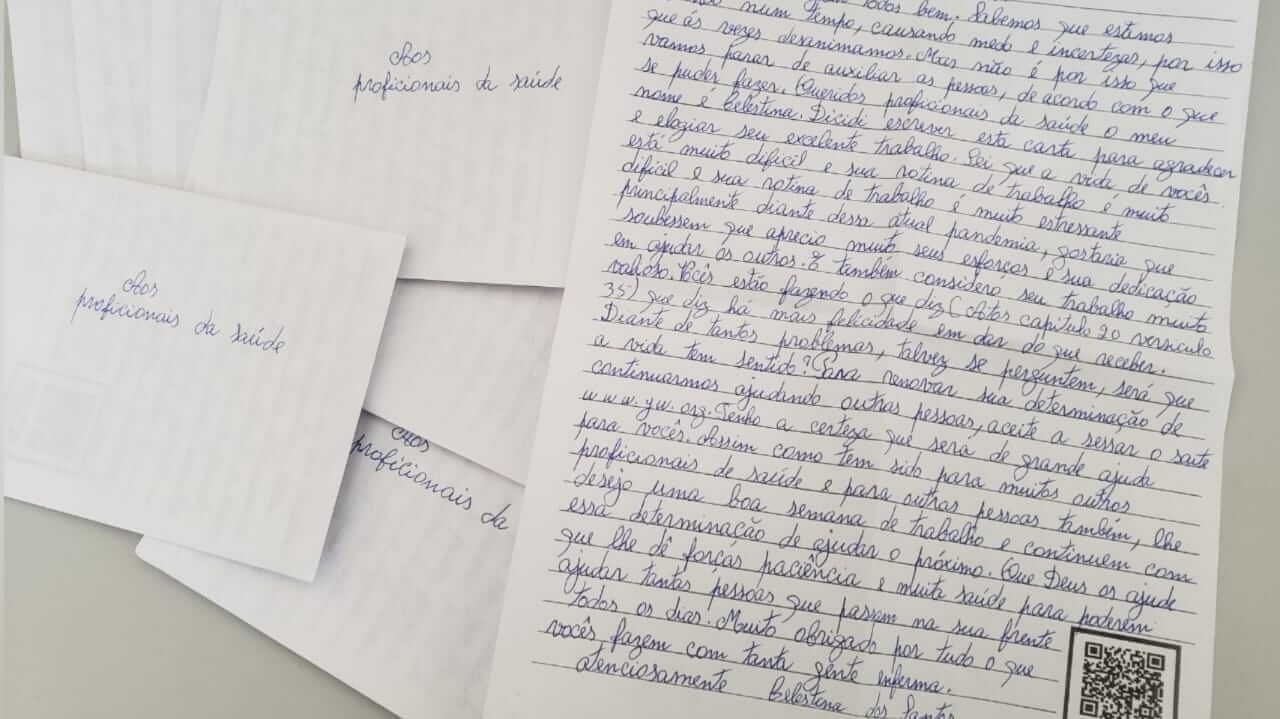 Aos
proficionais da saúde
Aos
proficionais da saúde
Aos
proficionais da
todos bem. Sabemos que estamos
num tempo, causando medo e incertezas, por isso
que ás vezes desanimamos. Mas não é por isso que
vamos parar de auxiliar as pessoas, de acordo com o que
se puder fazer. Queridos proficionais da saúde o meu
nome é Celestina. Dicidi escrever esta carta para agradecer
e elogiar seu excelente trabalho. Sei que a vida de vocês
está muito dificil e sua rotina de trabalho é muito
dificil e sua rotina de trabalho é muito estressante
principalmente diante dessa atual pandemia, gostaria que
soubessem que aprecio muito seus esforços e sua dedicação
em ajudar os outros. E também considero seu trabalho muito
valioso. Vocês estão fazendo o que diz (Atos capitulo 20 versiculo
35) que diz há mais felicidade em dar do que receber.
Diante de tantos problemas, talvez se perguntem, será que
a vida tem sentido? Para renovar sua determinação de
continuarmos ajudando outras pessoas, aceite a sessar o saite
www.yw.org. Tenho a certeza que será de grande ajuda
para vocês. Assim como tem sido para muitos outros
proficionais de saúde e para outras pessoas também, lhe
desejo uma boa semana de trabalho e continuem com
essa determinação de ajudar o próximo. Que Deus os ajude
que lhe dê forças paciência e muita saúde para poderem
ajudar tantas pessoas que passem na sua frente
todos os dias. Muito obrigado por tudo o que
vocês fazem com tanta gente enferma.
atenciosamente Celestina dos Santos